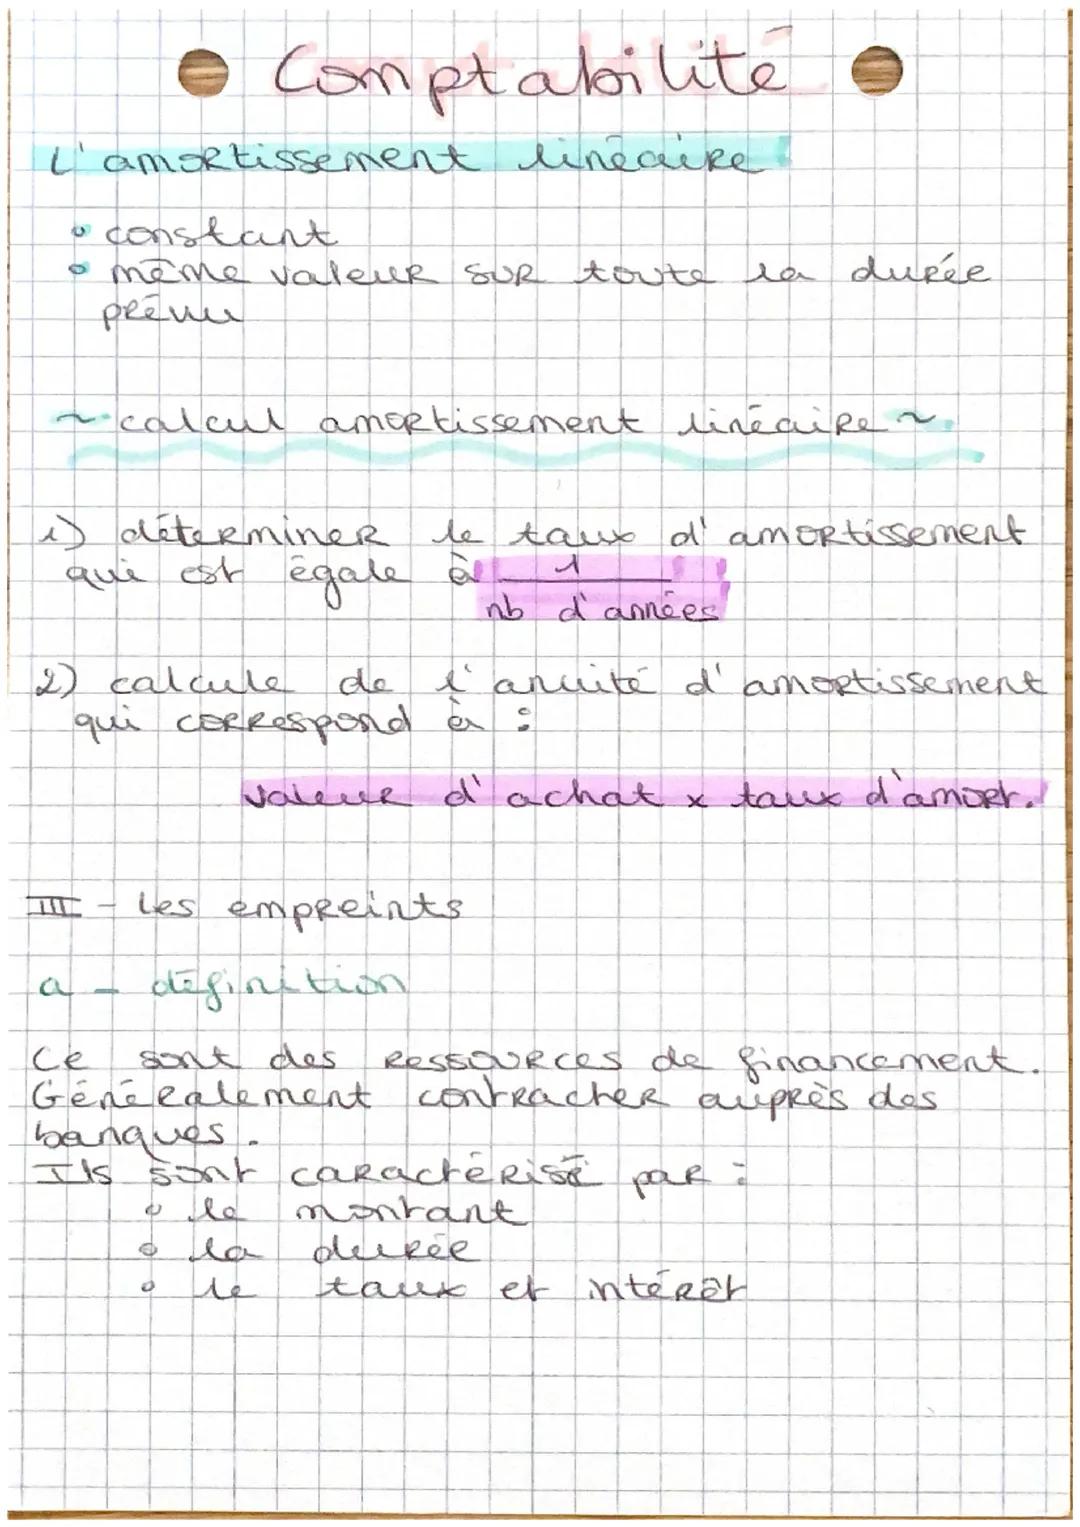 Comptabilité
L'amortissement linéaire
• constant
• même valeur sur toute la durée
prévu
~ calcul amortissement linéaire ~
1) déterminer le taux d'amortissement
qui est égale à 1
nb d'années
2) calcule de l'anuité d'amortissement
qui correspond à :
valeur d'achat x taux d'amort.
III - Les empreints
a - définition
Ce sont des ressources de financement.
Généralement contracter auprès des
banques.
Ils sont caractérisé par :
• le montant
• la durée
• le taux et intérêt